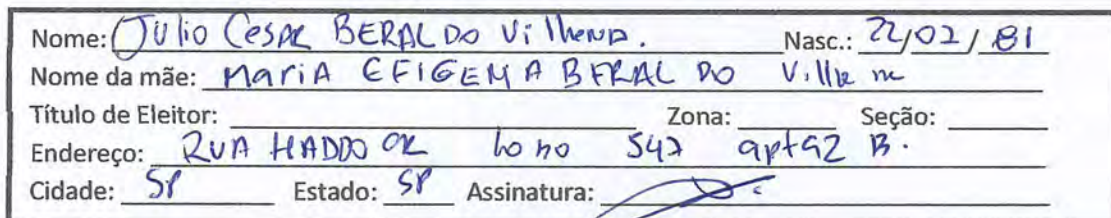 Nome: Julio Cesar BERALDO Vilhena. Nasc.: 22/02/81
Nome da mãe: Maria EFIGENIA BERALDO Vilhena
Título de Eleitor: Zona: Seção:
Endereço: RUA HADDOCK Lobo 547 apt 92 B.
Cidade: SP Estado: SP Assinatura: